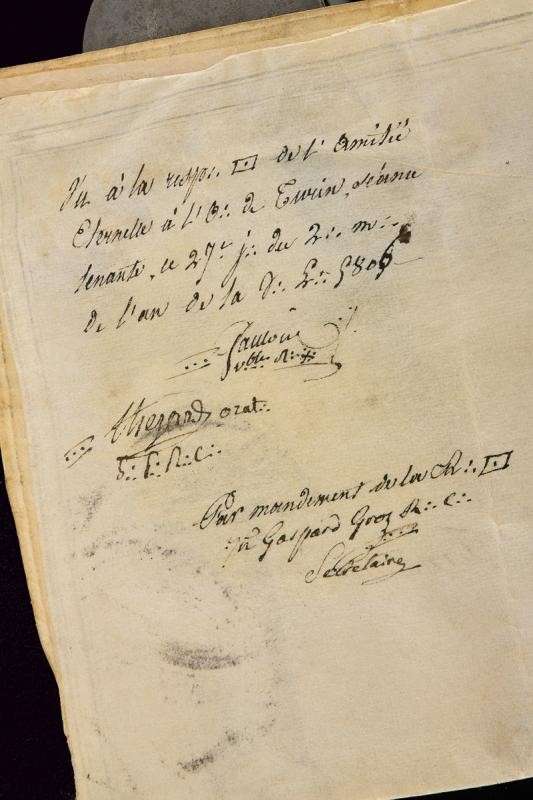 Vu à la resp∴ ⊡ de l'Amitié
Eternelle à l'O∴ de Turin, séance
tenante, le 27e j∴ du 2∴ m∴
de l'an de la V∴ L∴ 5806
R∴ †∴
orat∴
S∴ P∴ R∴ C∴
Par mandement de la R∴ ⊡
Gaspard Groz R∴ C∴
Secretaire